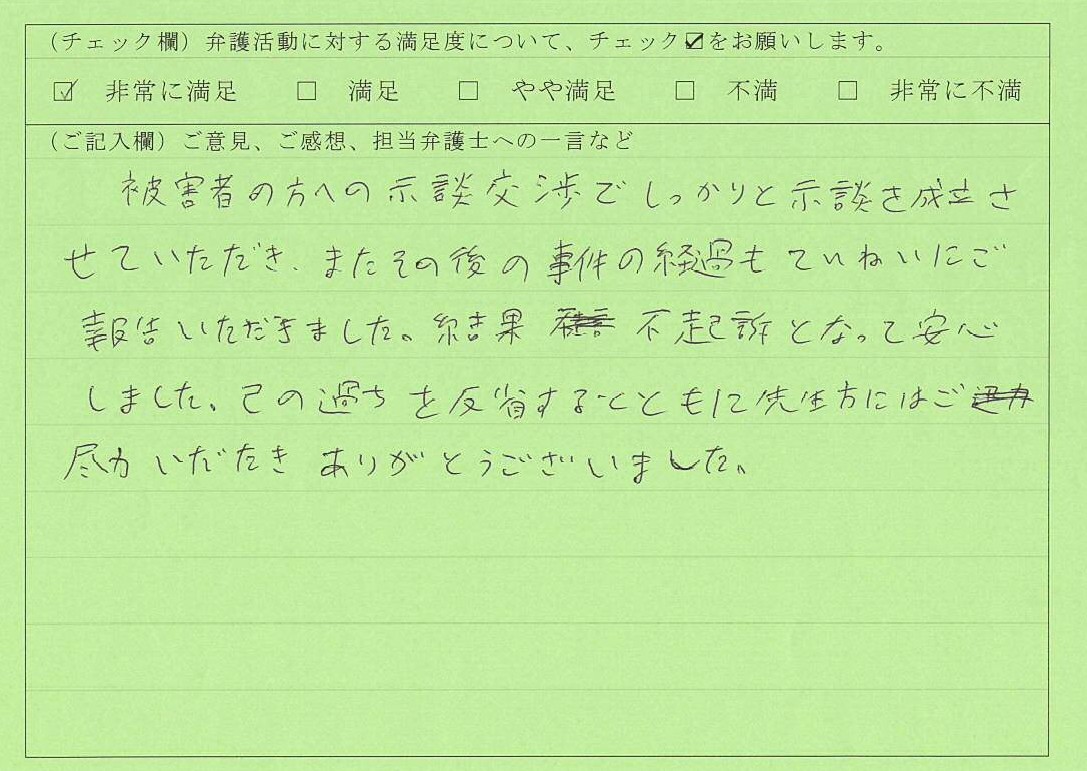 （チェック欄）弁護活動に対する満足度について、チェック☑をお願いします。
☑ 非常に満足 □ 満足 □ やや満足 □ 不満 □ 非常に不満
（ご記入欄）ご意見、ご感想、担当弁護士への一言など
被害者の方への示談交渉でしっかりと示談を成立さ
せていただき、またその後の事件の経過もていねいにご
報告いただきました。結果 不起訴となって安心
しました。己の過ちを反省するとともに先生方にはご
尽力いただきありがとうございました。